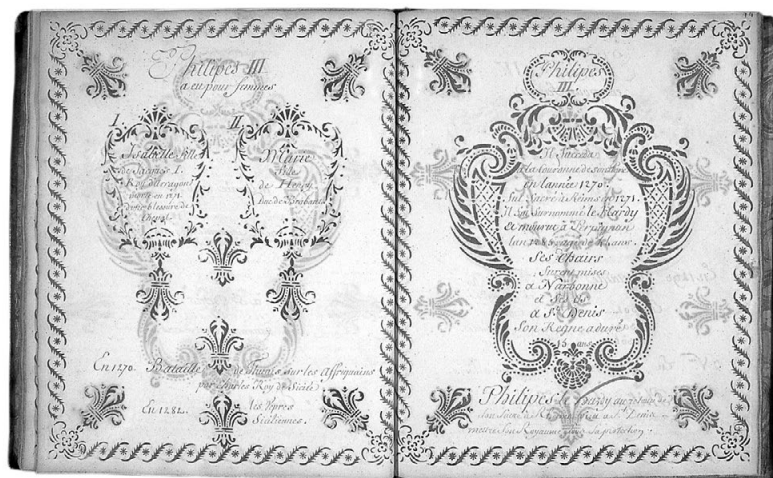 Philipes III
a eu pour femmes
I
Isabelle fille
de Jacques I.
Roy d'Arragon
morte en 1271
d'une blessure de
Cheval.
II
Marie
fille
de Henry
Duc de Brabant
En 1270. Bataille de sur les Affriquains
par Charles Roy de Sicile
En 1282. les Vepres
Siciliennes.
Philipes
III.
Il Succeda
a la Couronne de
en l'année 1270.
fut Sacré a Reims 1271.
Il fut Surnommé le Hardy
et mourut a Perpignan
l'an 1285 agé de ans.
Ses Chairs
furent mises
a Narbonne
et Ses Os
a St. Denis
Son Regne a duré
15 ans
Philipes le Hardy au retour de
Son Sacre de a St. Denis
mettre Son Royaume Sous Sa protection.